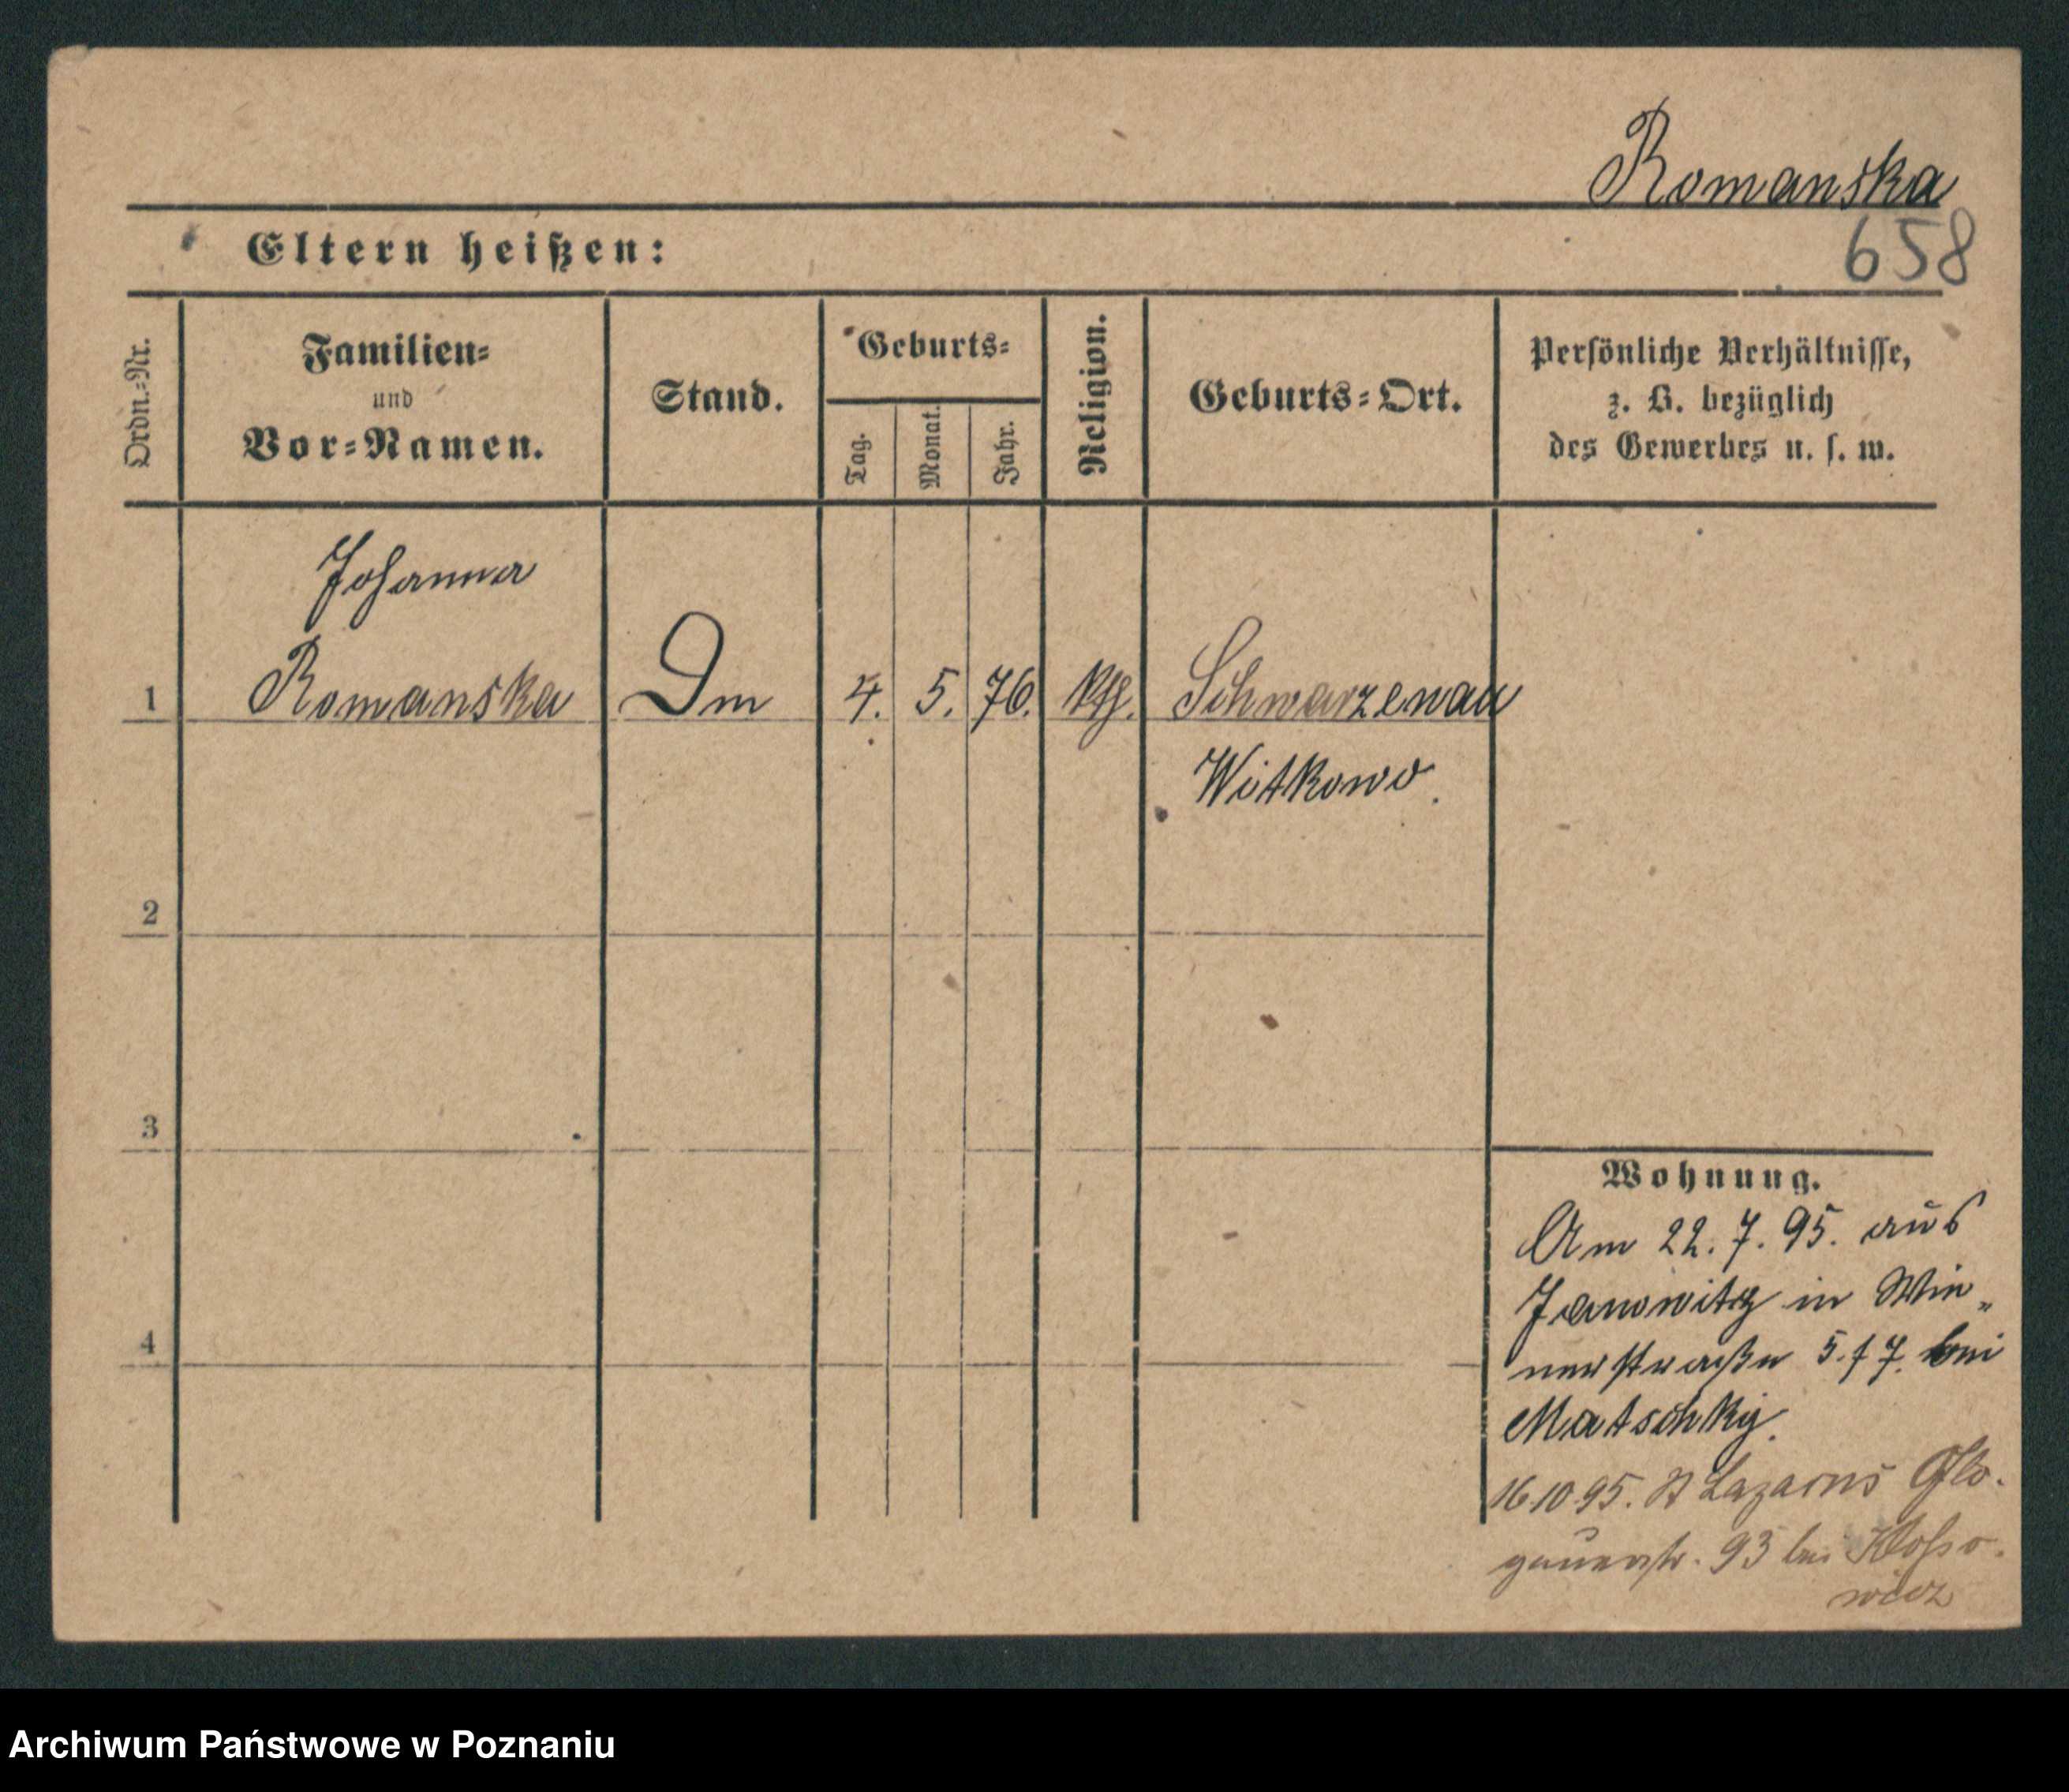 Romanska
658
Eltern heißen:
Ordn.=Nr.
Familien=
und
Vor=Namen.
Stand.
Geburts=
Tag.
Monat.
Jahr.
Religion.
Geburts=Ort.
Persönliche Verhältnisse,
z. B. bezüglich
des Gewerbes u. s. w.
Johanna
1 Romanska Dm 4. 5. 76. kth. Schwarzenau
Witkowo.
2
3
4
Wohnung.
Am 22. 7. 95. aus
Janowitz in Win„
nerstraße 5. f 7. bei
Matschky.
16.10.95. St Lazarus Glo-
gauerstr. 93 bei
wicz
Archiwum Państwowe w Poznaniu